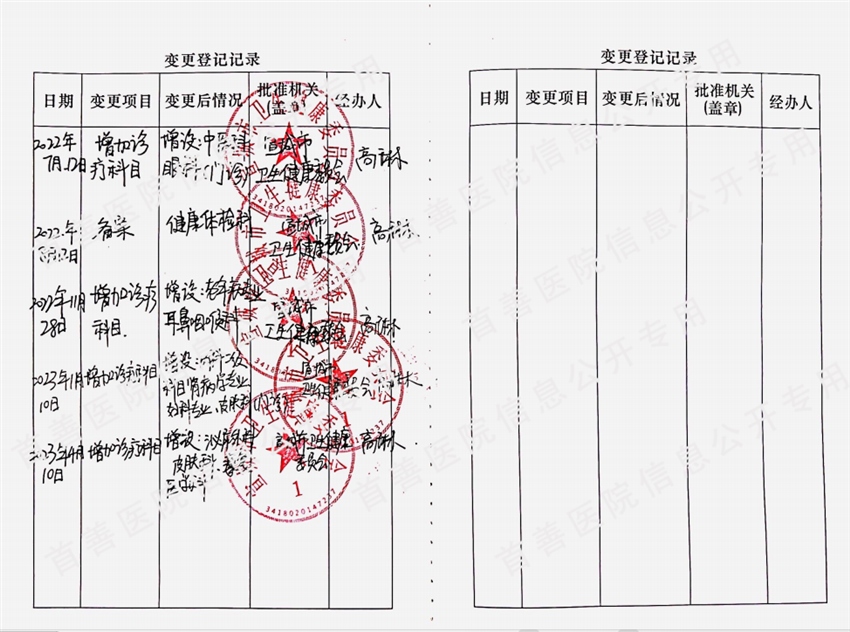 变更登记记录
日期 变更项目 变更后情况 批准机关 经办人
(盖章)
2022年 增加诊 增设:中医科 宣城市
7月12日 疗科目 眼科(门诊) 卫生健康委员会
备案 健康体检科 宣城市
2022年 卫生健康委员会
2022年11月 增加诊疗 增设:老年病专业 宣城市
28日 科目. 耳鼻咽喉科 卫生健康委员会
2023年1月 增加诊疗科目 增设:内科二级 宣城市
10日 科目肾病学专业
皮肤科
2023年4月 增加诊疗科目 增设:泌尿外科 宣城市卫生健康
10日 皮肤科、 委员会
医学科
3418020147237
1
变更登记记录
日期 变更项目 变更后情况 批准机关 经办人
(盖章)
首善医院信息公开专用